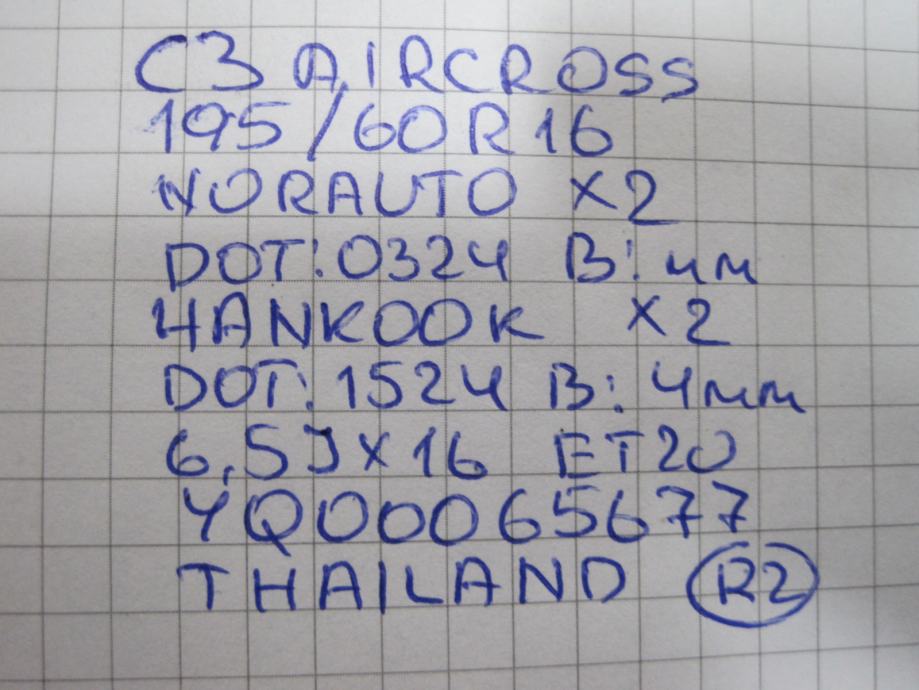 C3 AIRCROSS
195/60R16
NORAUTO X2
DOT:0324 B: 4м
HANKOOK X2
DOT:1524 B: 4мм
6,5J X 16 ET20
YQ00065677
THAILAND R2